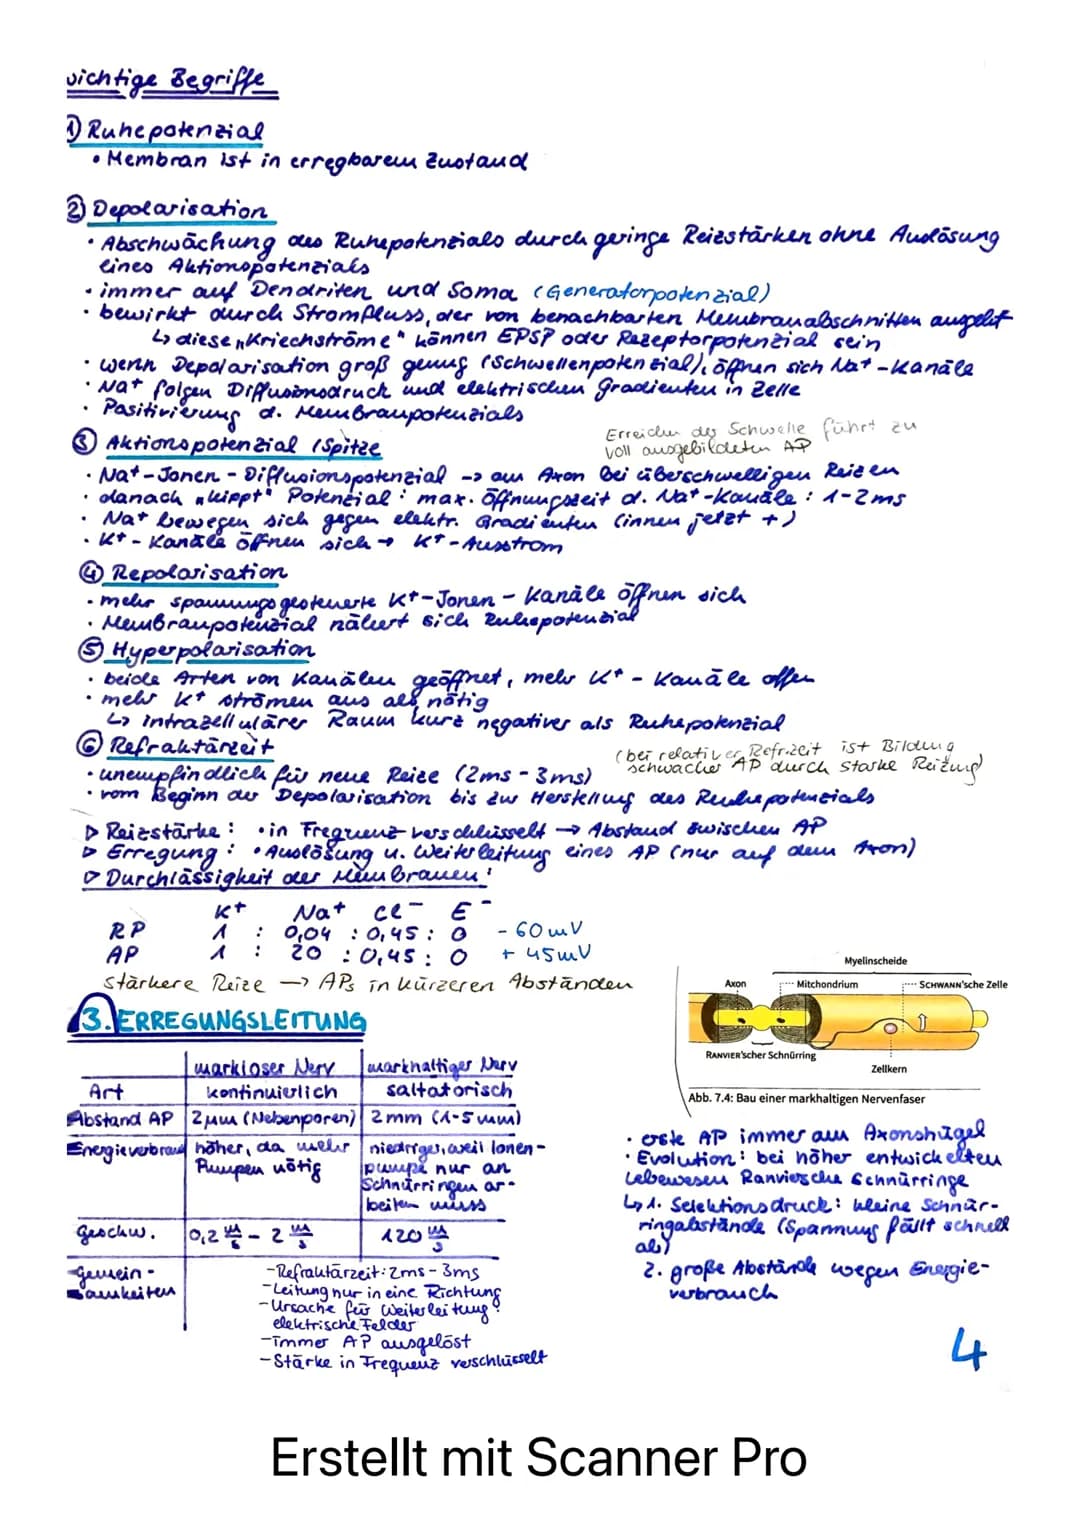 wichtige Begriffe
1) Ruhepotenzial
• Membran ist in erregbarem Zustand
2) Depolarisation
• Abschwächung des Ruhepotenzials durch geringe Reizstärken ohne Auslösung
eines Aktionspotenzials
• immer auf Dendriten und Soma (Generatorpotenzial)
• bewirkt durch Stromfluss, der von benachbarten Membranabschnitten ausgeht
↳ diese „Kriechströme" können EPSP oder Rezeptorpotenzial sein
• wenn Depolarisation groß genug (Schwellenpotenzial), öffnen sich Na+-Kanäle
• Na+ folgen Diffusionsdruck und elektrischen Gradienten in Zelle
• Positivierung d. Membranpotenzials
3) Aktionspotenzial (Spitze
Erreichen der Schwelle führt zu
voll ausgebildeten AP
• Na+-Jonen-Diffusionspotenzial -> am Axon bei überschwelligen Reizen
• danach „kippt" Potenzial: max. Öffnungszeit d. Na+-Kanäle: 1-2ms
• Na+ bewegen sich gegen elektr. Gradienten (innen jetzt +)
• K+-Kanäle öffnen sich → K+-Ausstrom
4) Repolarisation
• mehr spannungsgesteuerte K+-Jonen-Kanäle öffnen sich
• Membranpotenzial nähert sich Ruhepotenzial
5) Hyperpolarisation
• beide Arten von Kanälen geöffnet, mehr K+-Kanäle offen
• mehr K+ strömen aus als nötig
↳ intrazellulärer Raum kurz negativer als Ruhepotenzial
6) Refraktärzeit
(bei relativer Refr.zeit ist Bildung
schwacher AP durch starke Reizung)
• unempfindlich für neue Reize (2ms-3ms)
• vom Beginn der Depolarisation bis zur Herstellung des Ruhepotenzials
▷ Reizstärke: • in Frequenz verschlüsselt → Abstand zwischen AP
▷ Erregung: • Auslösung u. Weiterleitung eines AP (nur auf dem Axon)
▷ Durchlässigkeit der Membranen:
K+ Na+ Cl- E-
RP 1 : 0,04 : 0,45 : 0 - 60mV
AP 1 : 20 : 0,45 : 0 + 45mV
stärkere Reize → APs in kürzeren Abständen
3. ERREGUNGSLEITUNG
markloser Nerv markhaltiger Nerv
Art kontinuierlich saltatorisch
Abstand AP 2µm (Nebenporen) 2mm (1-5mm)
Energieverbrauch höher, da mehr Pumpen nötig niedriger, weil Ionenpumpe nur an Schnürringen arbeiten muss
Geschw. 0,2 m/s - 2 m/s 120 m/s
Gemeinsamkeiten
-Refraktärzeit: 2ms-3ms
-Leitung nur in eine Richtung
-Ursache für Weiterleitung:
elektrische Felder
-immer AP ausgelöst
-Stärke in Frequenz verschlüsselt
Myelinscheide
Axon
Mitchondrium
SCHWANN'sche Zelle
RANVIER'scher Schnürring
Zellkern
Abb. 7.4: Bau einer markhaltigen Nervenfaser
• erste AP immer am Axonshügel
• Evolution: bei höher entwickelten
Lebewesen Ranviersche Schnürringe
↳ 1. Selektionsdruck: kleine Schnür-
ringabstände (Spannung fällt schnell
ab)
2. große Abstände wegen Energie-
verbrauch
4
Erstellt mit Scanner Pro